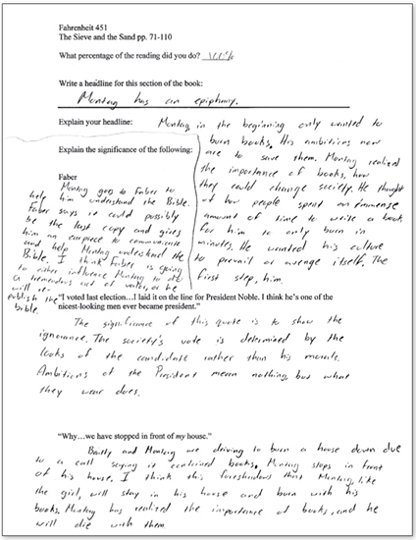 Fahrenheit 451
The Sieve and the Sand pp. 71-110
What percentage of the reading did you do? 100%
Write a headline for this section of the book:
Montag has an epiphany.
Explain your headline: Montag in the beginning only wanted to
burn books. His ambitions now
are to save them. Montag realized
the importance of books, how
they could change society. He thought
of how people spend an immense
amount of time to write a book
for him to only burn in
minutes. He wanted his culture
to prevail or avenge itself. The
first step, him.
Explain the significance of the following:
Faber
Montag goes to Faber to
help him understand the Bible.
Faber says it could possibly
be the last copy and gives
him an earpiece to communicate
and help Montag understand the
Bible. I think Faber is going
to either influence Montag to do
a tremendous act of, or he
will re-
publish the
bible.
"I voted last election…I laid it on the line for President Noble. I think he's one of the
nicest-looking men ever became president."
The significance of this quote is to show the
ignorance. The society's vote is determined by the
looks of the candidate rather than his morals.
Ambitions of the President mean nothing, but what
they wear does.
"Why…we have stopped in front of my house."
Beatty and Montag are driving to burn a house down due
to a call saying it contained books. Montag stops in front
of his house. I think this foreshadows that Montag, like
the girl, will stay in his house and burn with his
books. Montag has realized the importance of books, and he
will die with them.